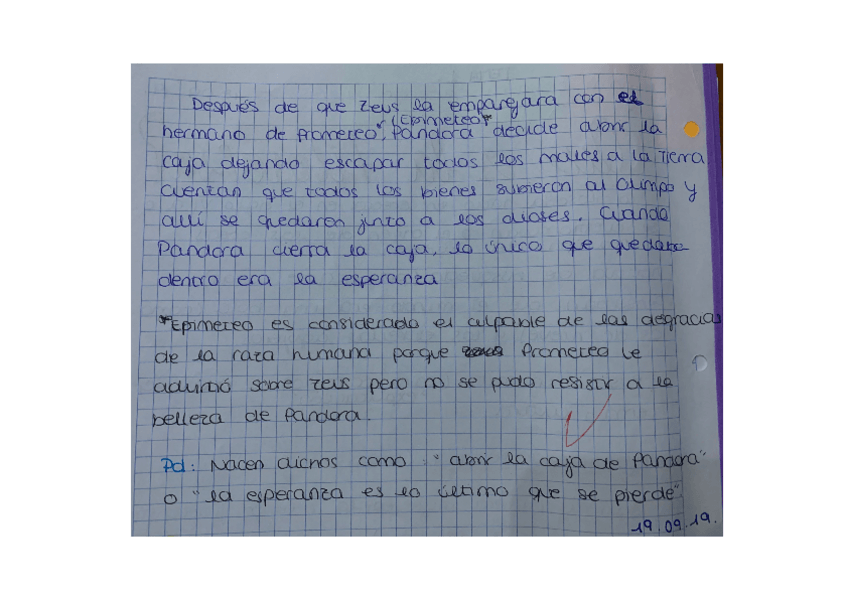 Después de que Zeus la emparejara con el
(Epimeteo)*
hermano de Prometeo, Pandora decide abrir la
caja dejando escapar todos los males a la Tierra
cuentan que todos los bienes subieron al Olimpo y
allí se quedaron junto a los dioses. Cuando
Pandora cierra la caja, lo único que quedaba
dentro era la esperanza
*Epimeteo es considerado el culpable de las degracias
de la raza humana porque Prometeo le
advirtió sobre Zeus pero no se pudo resistir a la
belleza de Pandora.
Pd: Nacen dichos como: "abrir la caja de Pandora"
o "la esperanza es lo último que se pierde"
19.09.19.